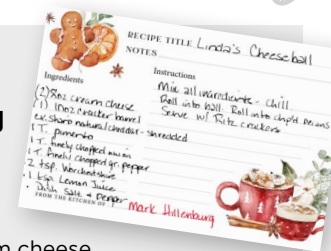 RECIPE TITLE Linda's Cheeseball
NOTES
Ingredients
(2) 8oz cream cheese
(1) 10oz cracker barrel
ex sharp natural cheddar - shredded
1 T. pimento
1 T. finely chopped onion
1 T. finely chopped gr. pepper
2 tsp Worchestshire
1 tsp. Lemon Juice
Dash Salt & Pepper
Instructions
Mix all ingredients - Chill
Roll into ball. Roll into chp'd pecans
Serve w/ Ritz crackers
FROM THE KITCHEN OF Mark Hillenburg
m cheese